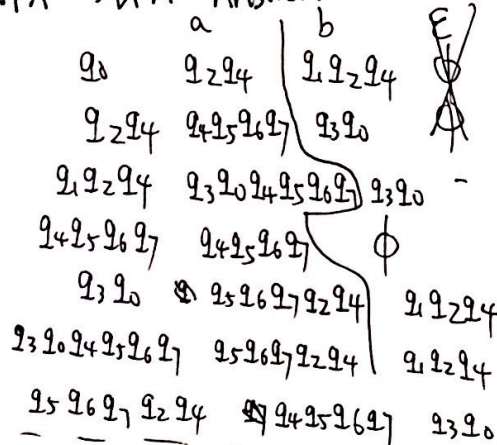 a b ε
q0 q2q4 q1q2q4 ϕ
q2q4 q4q5q6q7 q3q0 ϕ
q1q2q4 q3q0q4q5q6q7 q3q0 -
q4q5q6q7 q4q5q6q7 ϕ
q3q0 q5q6q7q2q4 q1q2q4
q3q0q4q5q6q7 q5q6q7q2q4 q1q2q4
q5q6q7q2q4 q4q5q6q7 q3q0